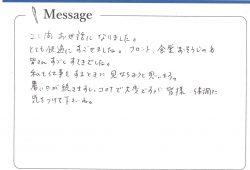 Message
ここ1ヶ月お世話になりました。
とても快適にすごせました。フロント、食堂、おそうじの方
皆さんすごくすてきでした。
私も仕事をするときに見ならおうと思います。
暑い日が続きますし、コロナで大変ですが皆様、体調に
気をつけて下さいね。